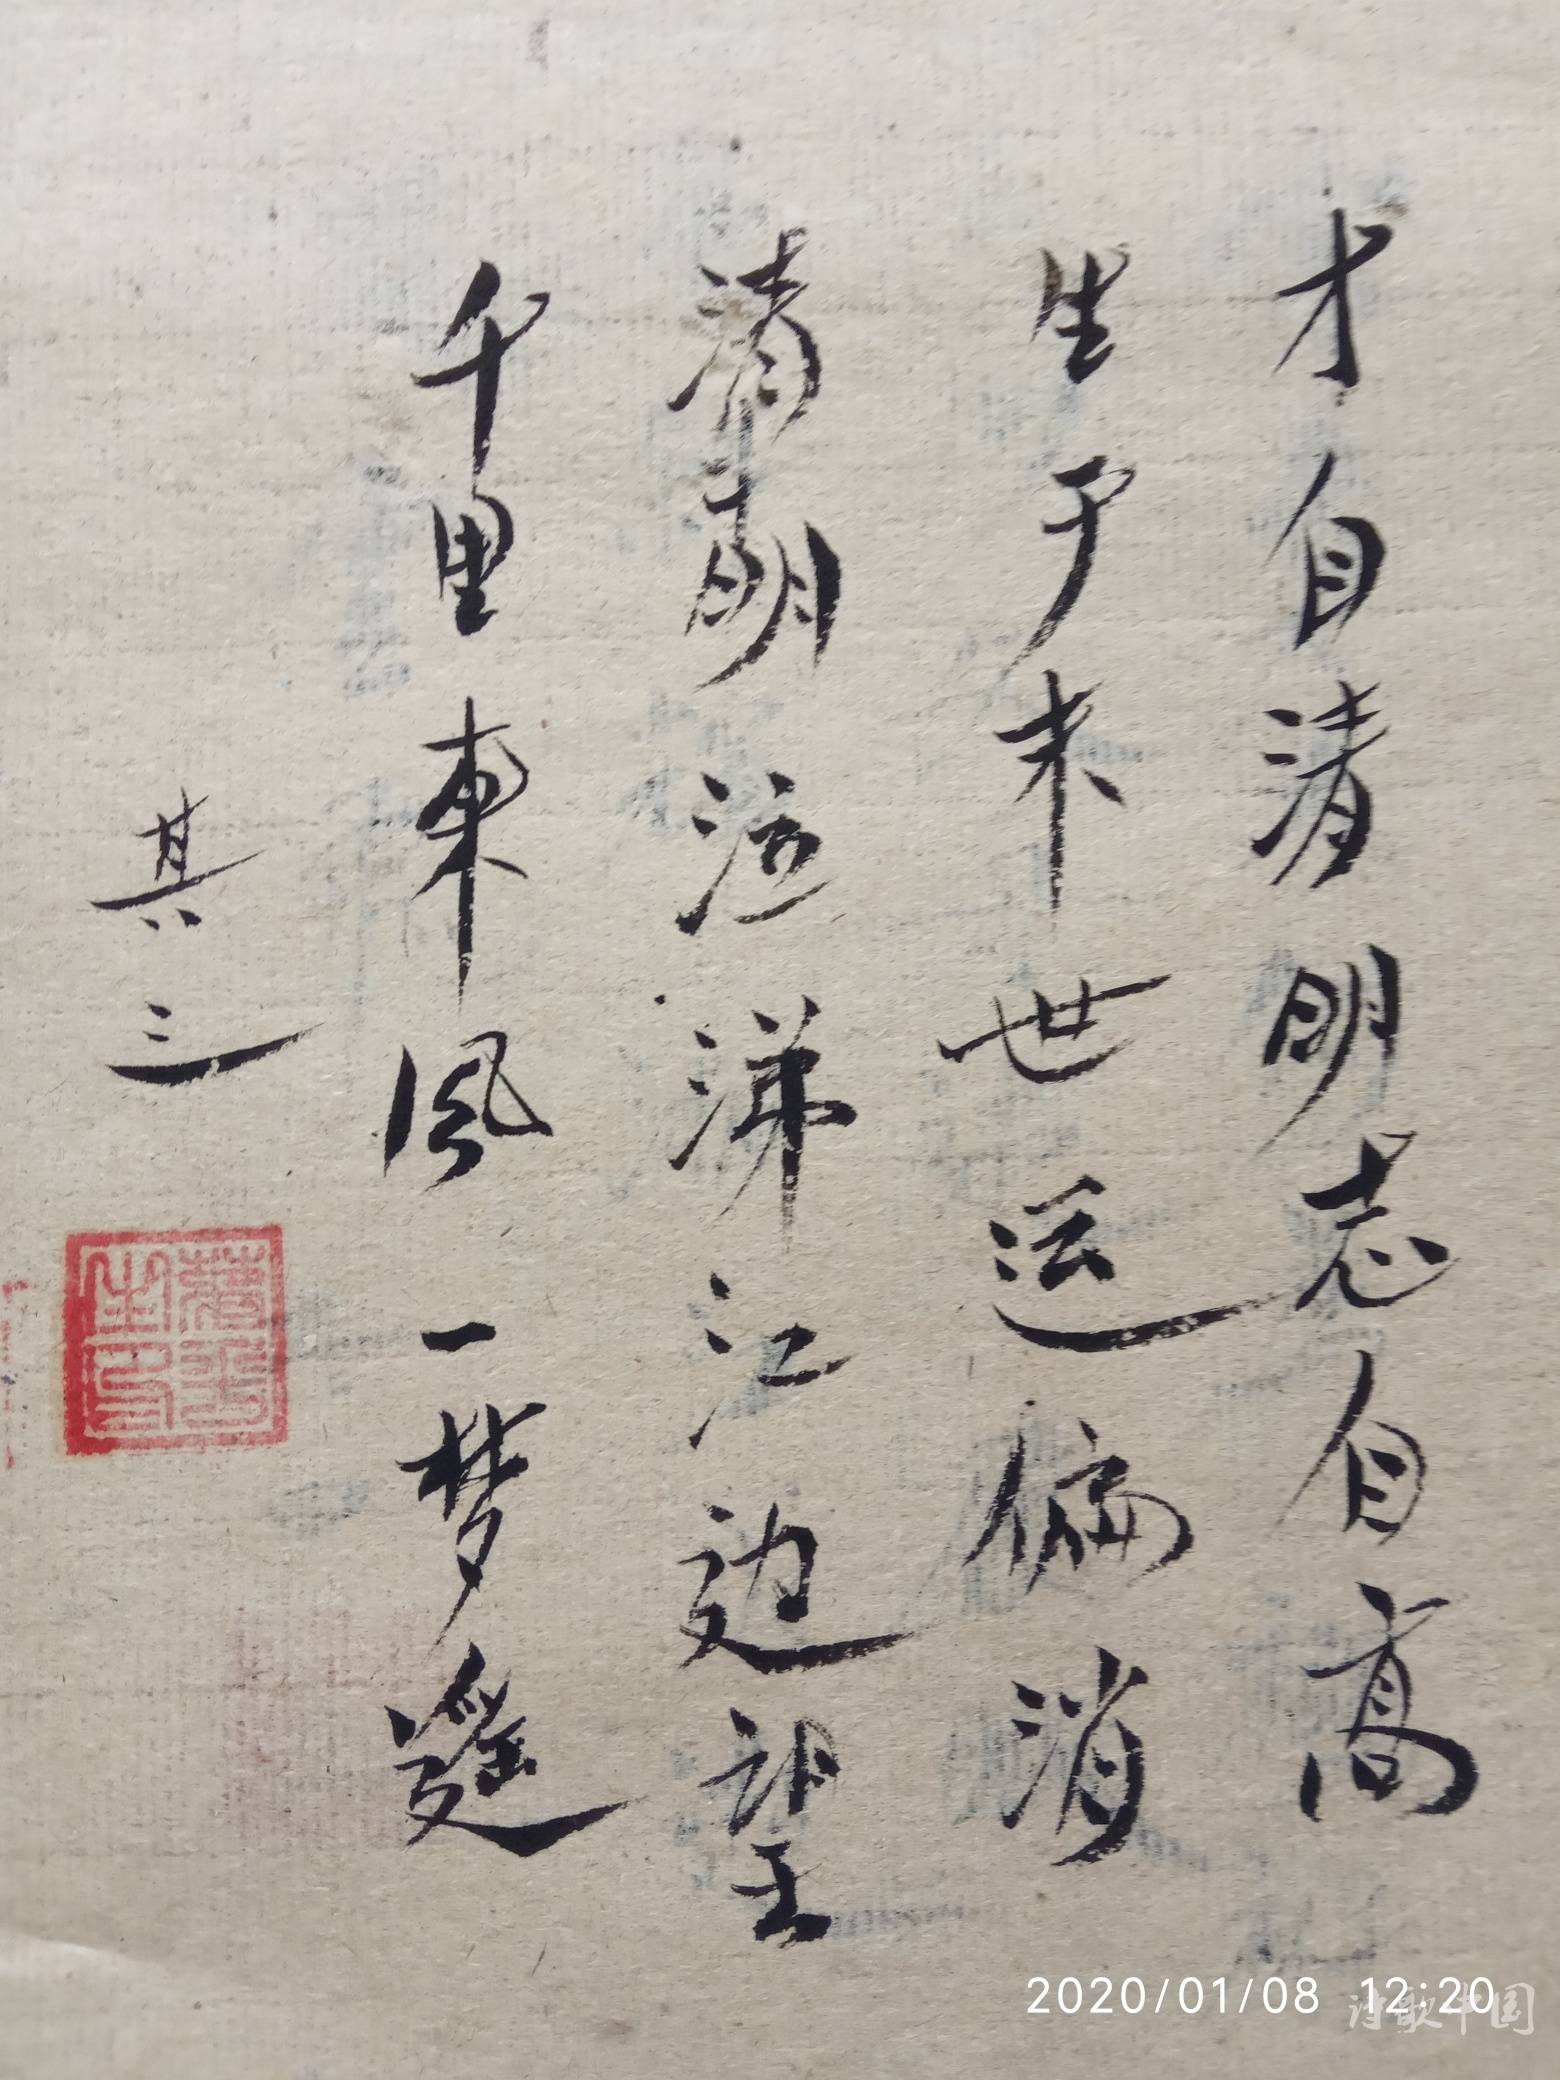 才自清明志自高
生于末世运偏消
清明泣涕江边望
千里東风一梦遥
其三
2020/01/08 12:20
诗歌中国